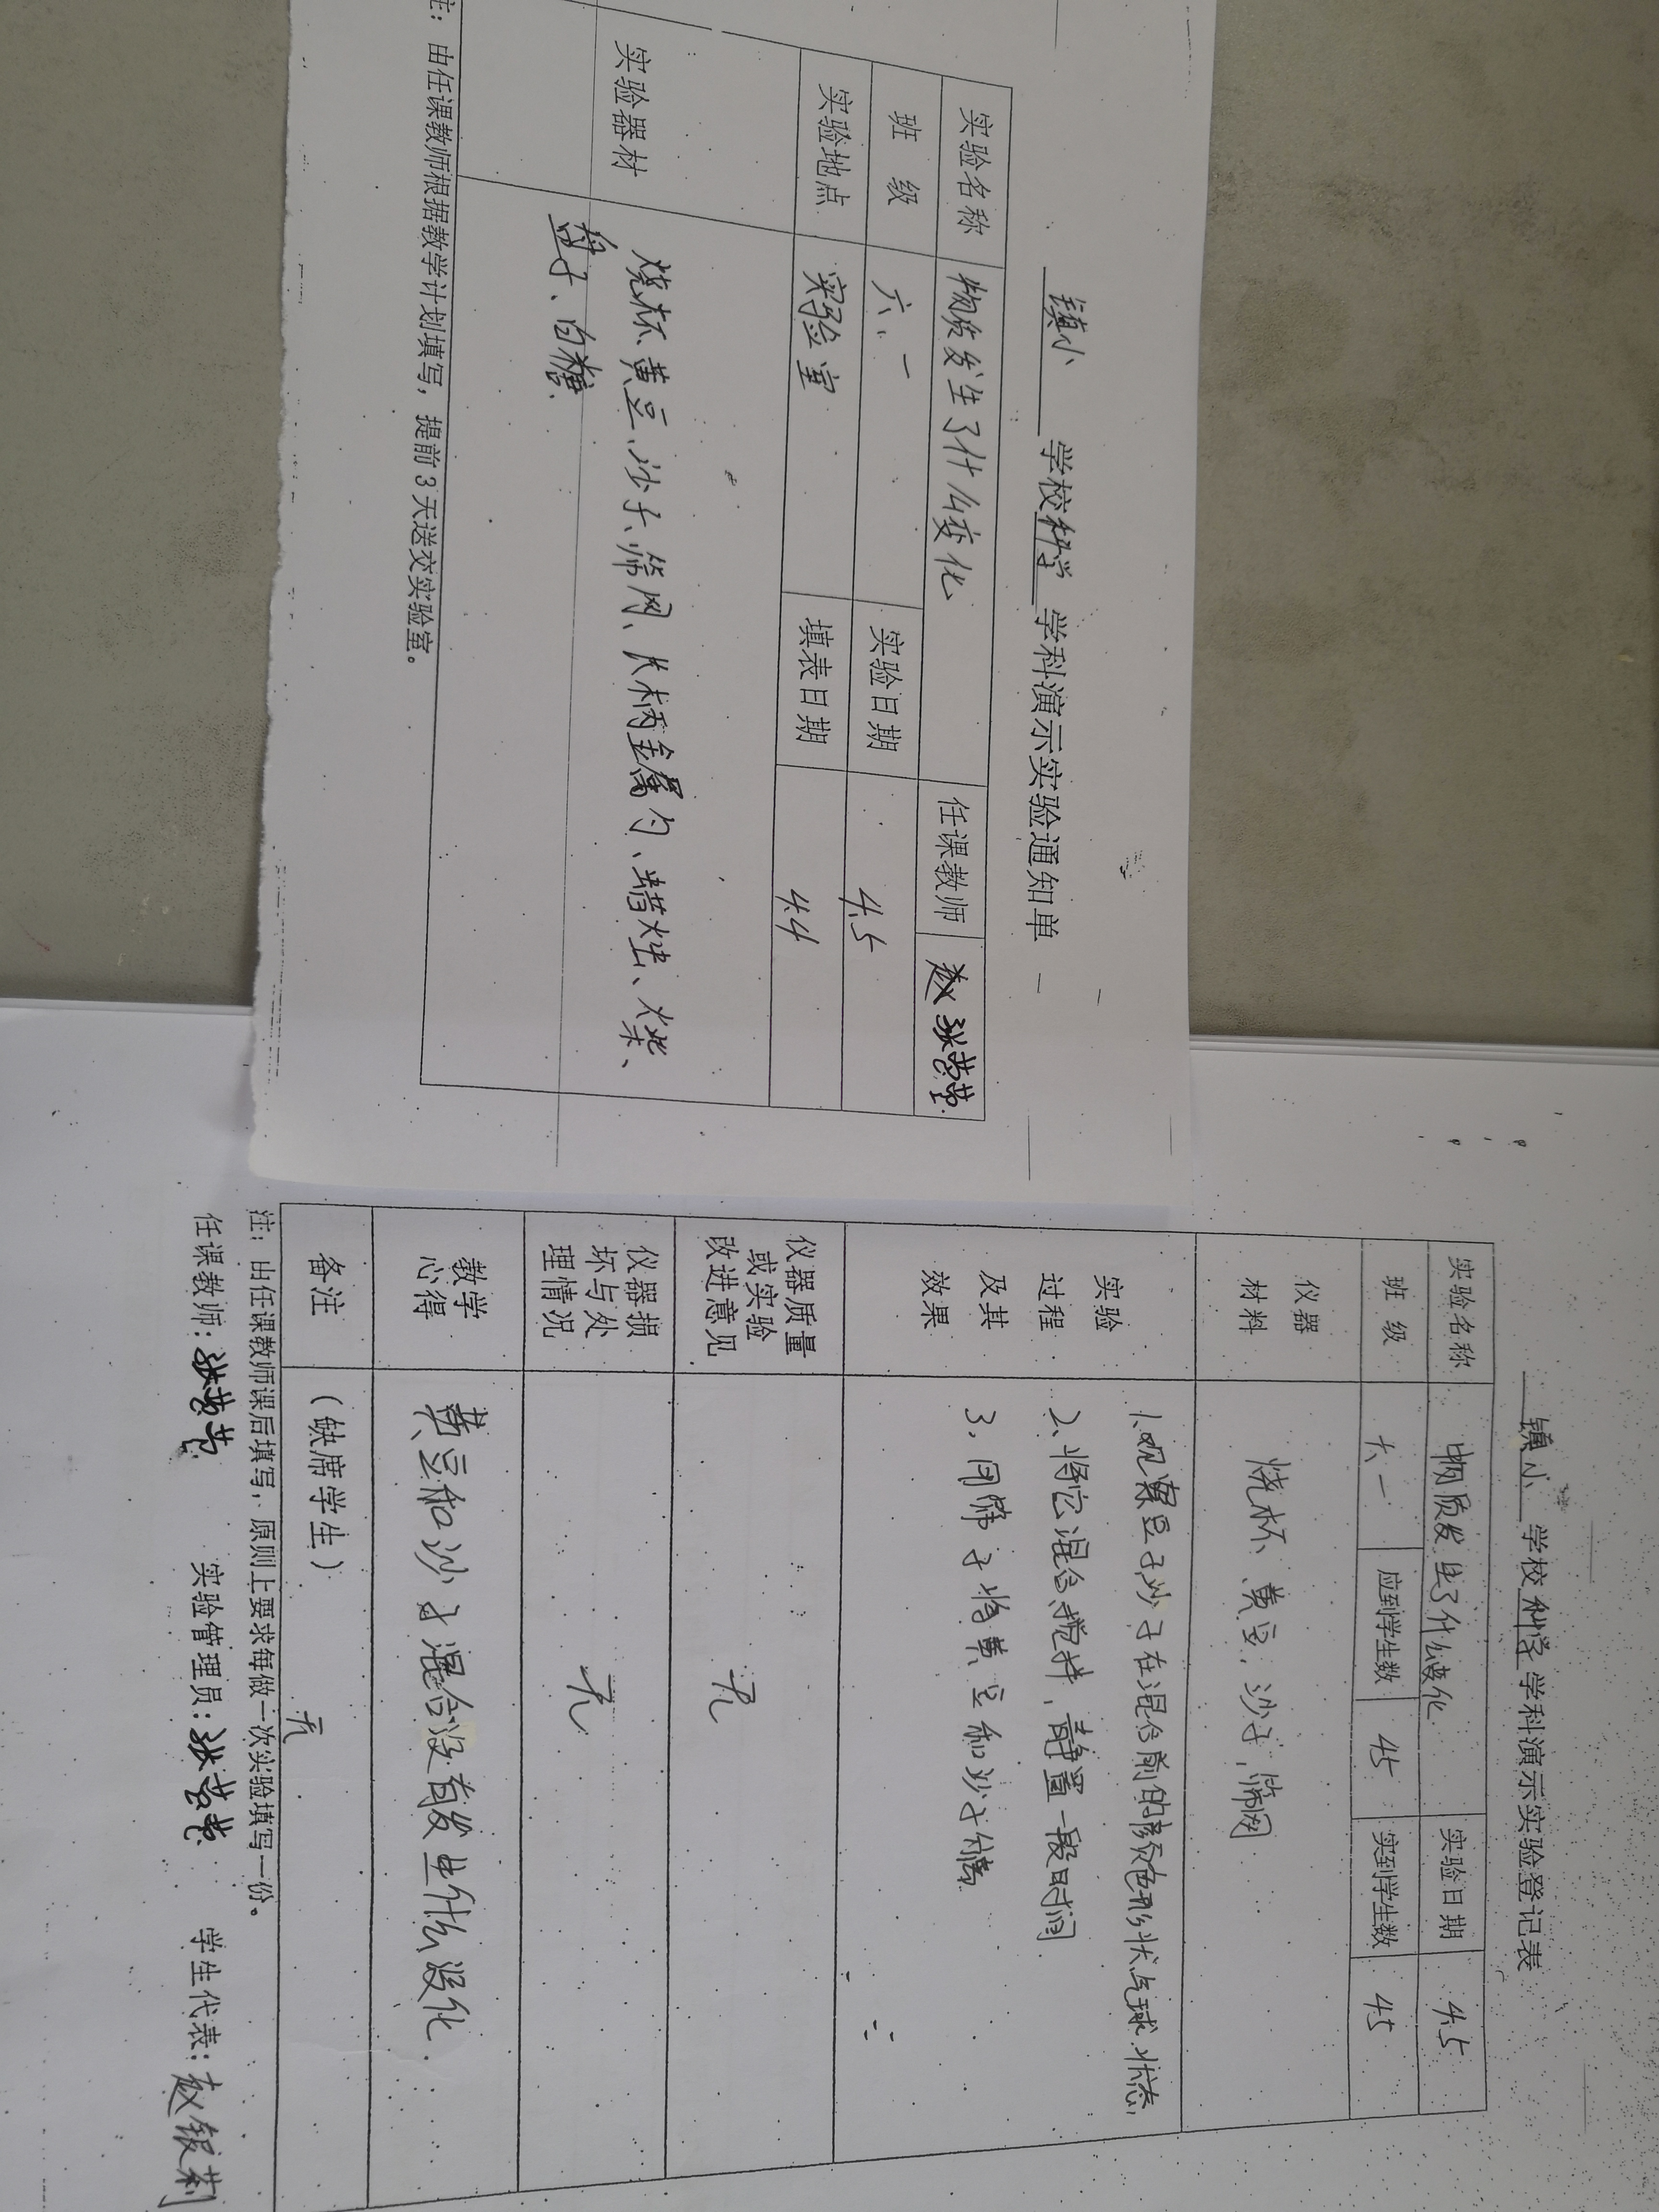 镇小 学校 科学 学科演示实验通知单
实验名称 物质发生了什么变化 任课教师
班 级 六、一 实验日期 4.5
实验地点 实验室 填表日期 4.4
实验器材 烧杯 黄豆、沙子、筛网、长柄金属勺、蜡烛、火柴、
盘子、白糖
注：由任课教师根据教学计划填写，提前3天送交实验室。
镇小 学校 科学 学科演示实验登记表
实验名称 物质发生了什么变化 实验日期 4.5
班 级 六一 应到学生数 45 实到学生数 45
仪器
材料
烧杯、黄豆、沙子、筛网
实验
过程
及其
效果
1.观察豆子沙子在混合前的颜色形状 状态
2、将它混合,搅拌，静置一段时间
3、用筛子将黄豆和沙子分离
仪器质量
或实验
改进意见
无
仪器损
坏与处
理情况
无
教学
心得
黄豆和沙子混合没有发生什么变化.
备注
（缺席学生）
无
注：由任课教师课后填写，原则上要求每做一次实验填写一份。
任课教师： 实验管理员： 学生代表：赵银莉